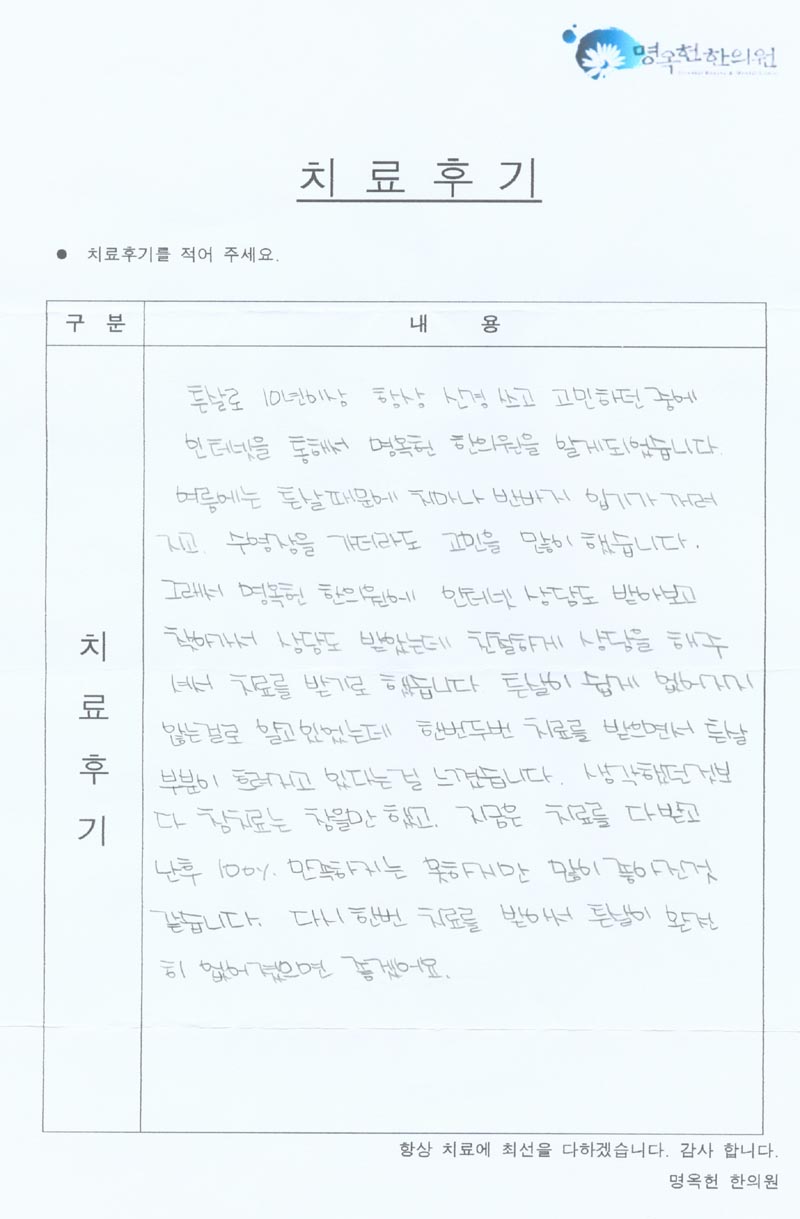 명옥헌한의원
치 료 후 기
● 치료후기를 적어 주세요.
구 분
내 용
치
료
후
기
튼살로 10년이상 항상 신경 쓰고 고민하던 중에
인터넷을 통해서 명옥헌 한의원을 알게되었습니다.
여름에는 튼살때문에 치마나 반바지 입기가 꺼려
지고. 수영장을 가더라도 고민을 많이 했습니다.
그래서 명옥헌 한의원에 인터넷 상담도 받아보고
찾아가서 상담도 받았는데 친절하게 상담을 해주
셔서 치료를 받기로 했습니다 튼살이 쉽게 없어지지
않는걸로 알고있었는데 한번두번 치료를 받으면서 튼살
부분이 흐려지고 있다는걸 느꼈습니다. 생각했던것보
다 침치료는 참을만 했고. 지금은 치료를 다받고
난후 100% 만족하지는 못하지만 많이 좋아진것
같습니다. 다시한번 치료를 받아서 튼살이 완전
히 없어졌으면 좋겠어요.
항상 치료에 최선을 다하겠습니다. 감사 합니다.
명옥헌 한의원